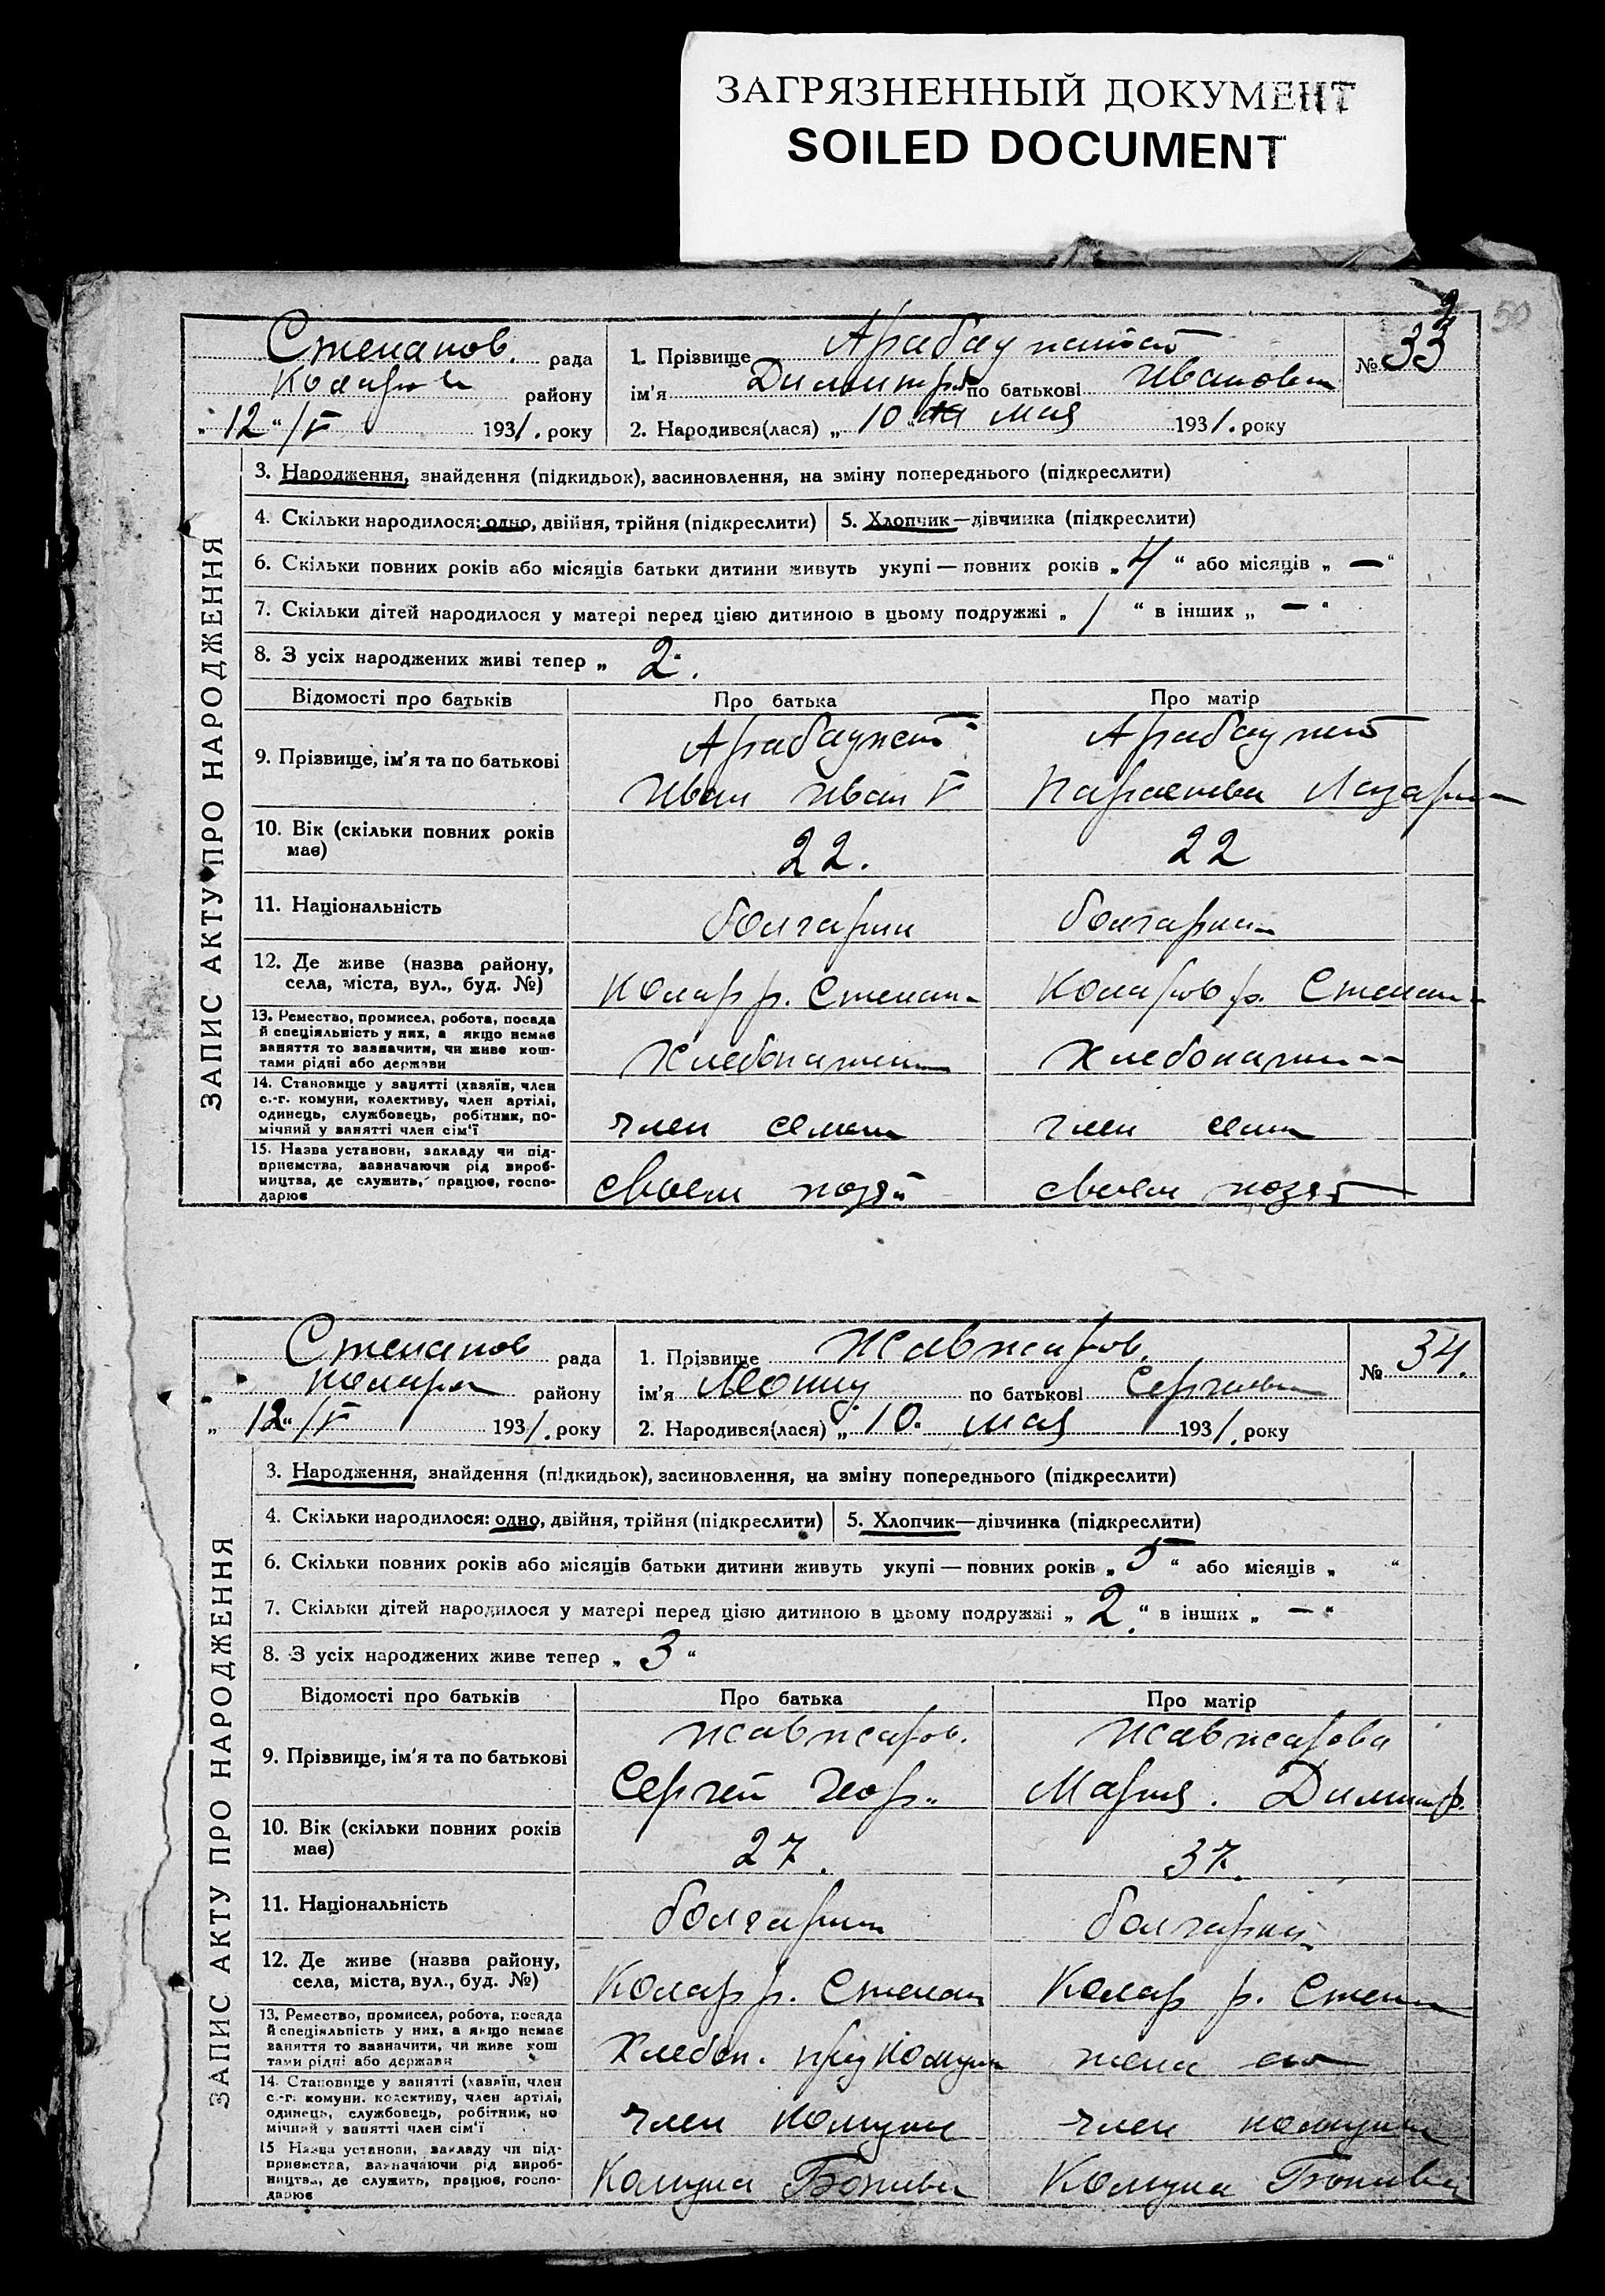 ЗАГРЯЗНЕННЫЙ ДОКУМЕНТ
SOILED DOCUMENT
50
Степанов. рада
района району
„12“/V 1931. року
1. Прізвище
№ 33
ім'я Димитр по батькові Иванович
2. Народився(лася) „10“ мая 1931. року
ЗАПИС АКТУ ПРО НАРОДЖЕННЯ
3. Народження, знайдення (підкидьок), засиновлення, на зміну попереднього (підкреслити)
4. Скільки народилося: одно, двійня, трійня (підкреслити) 5. Хлопчик—дівчинка (підкреслити)
6. Скільки повних років або місяців батьки дитини живуть укупі — повних років „4“ або місяців „—“
7. Скільки дітей народилося у матері перед цією дитиною в цьому подружжі „1“ в інших „—“
8. З усіх народжених живі тепер „2“.
Відомості про батьків Про батька Про матір
9. Прізвище, ім'я та по батькові
Иван Иван Параскева Лазар
10. Вік (скільки повних років має) 22. 22
11. Національність болгарин болгарин
12. Де живе (назва району, села, міста, вул., буд. №) Колар р. Степан Коларов р. Степан
13. Ремество, промисел, робота, посада
й спеціяльність у них, а якщо немає
заняття то зазначити, чи живе кош-
тами рідні або держави
Хлебопашен Хлебопашен
14. Становище у занятті (хазяїн, член
с.-г. комуни, колективу, член артілі,
одинець, службовець, робітник, по-
мічний у занятті член сім'ї
член семьи член семьи
15. Назва установи, закладу чи під-
приємства, зазначаючи рід вироб-
ництва, де служить, працює, госпо-
дарює
своем хозяй своем хозяй
Степанов рада
Колар району
„12“/V 1931. року
1. Прізвище Жавжаров.
№ 34.
ім'я по батькові Сергиевич
2. Народився(лася) „10“ мая 1931. року
ЗАПИС АКТУ ПРО НАРОДЖЕННЯ
3. Народження, знайдення (підкидьок), засиновлення, на зміну попереднього (підкреслити)
4. Скільки народилося: одно, двійня, трійня (підкреслити) 5. Хлопчик—дівчинка (підкреслити)
6. Скільки повних років або місяців батьки дитини живуть укупі — повних років „5“ або місяців „ “
7. Скільки дітей народилося у матері перед цією дитиною в цьому подружжі „2“ в інших „—“
8. З усіх народжених живе тепер „3“
Відомості про батьків Про батька Про матір
9. Прізвище, ім'я та по батькові Жавжаров. Жавжарова
Сергей Геор. Мария. Димитр.
10. Вік (скільки повних років має) 27. 37.
11. Національність болгарин болгарин
12. Де живе (назва району, села, міста, вул., буд. №) Колар р. Степан Колар р. Степан
13. Ремество, промисел, робота, посада
й спеціяльність у них, а якщо немає
заняття то зазначити, чи живе кош
тами рідні або держави
Хлебоп. пред комуни жена его
14. Становище у занятті (хазяїн, член
с.-г. комуни, колективу, член артілі,
одинець, службовець, робітник, по
мічний у занятті член сім'ї
член комуны член комуны
15 Назва установи, закладу чи під-
приємства, зазначаючи рід вироб-
ництва, де служить, працює, госпо-
дарює
Комуна Ботива Комуна Ботива